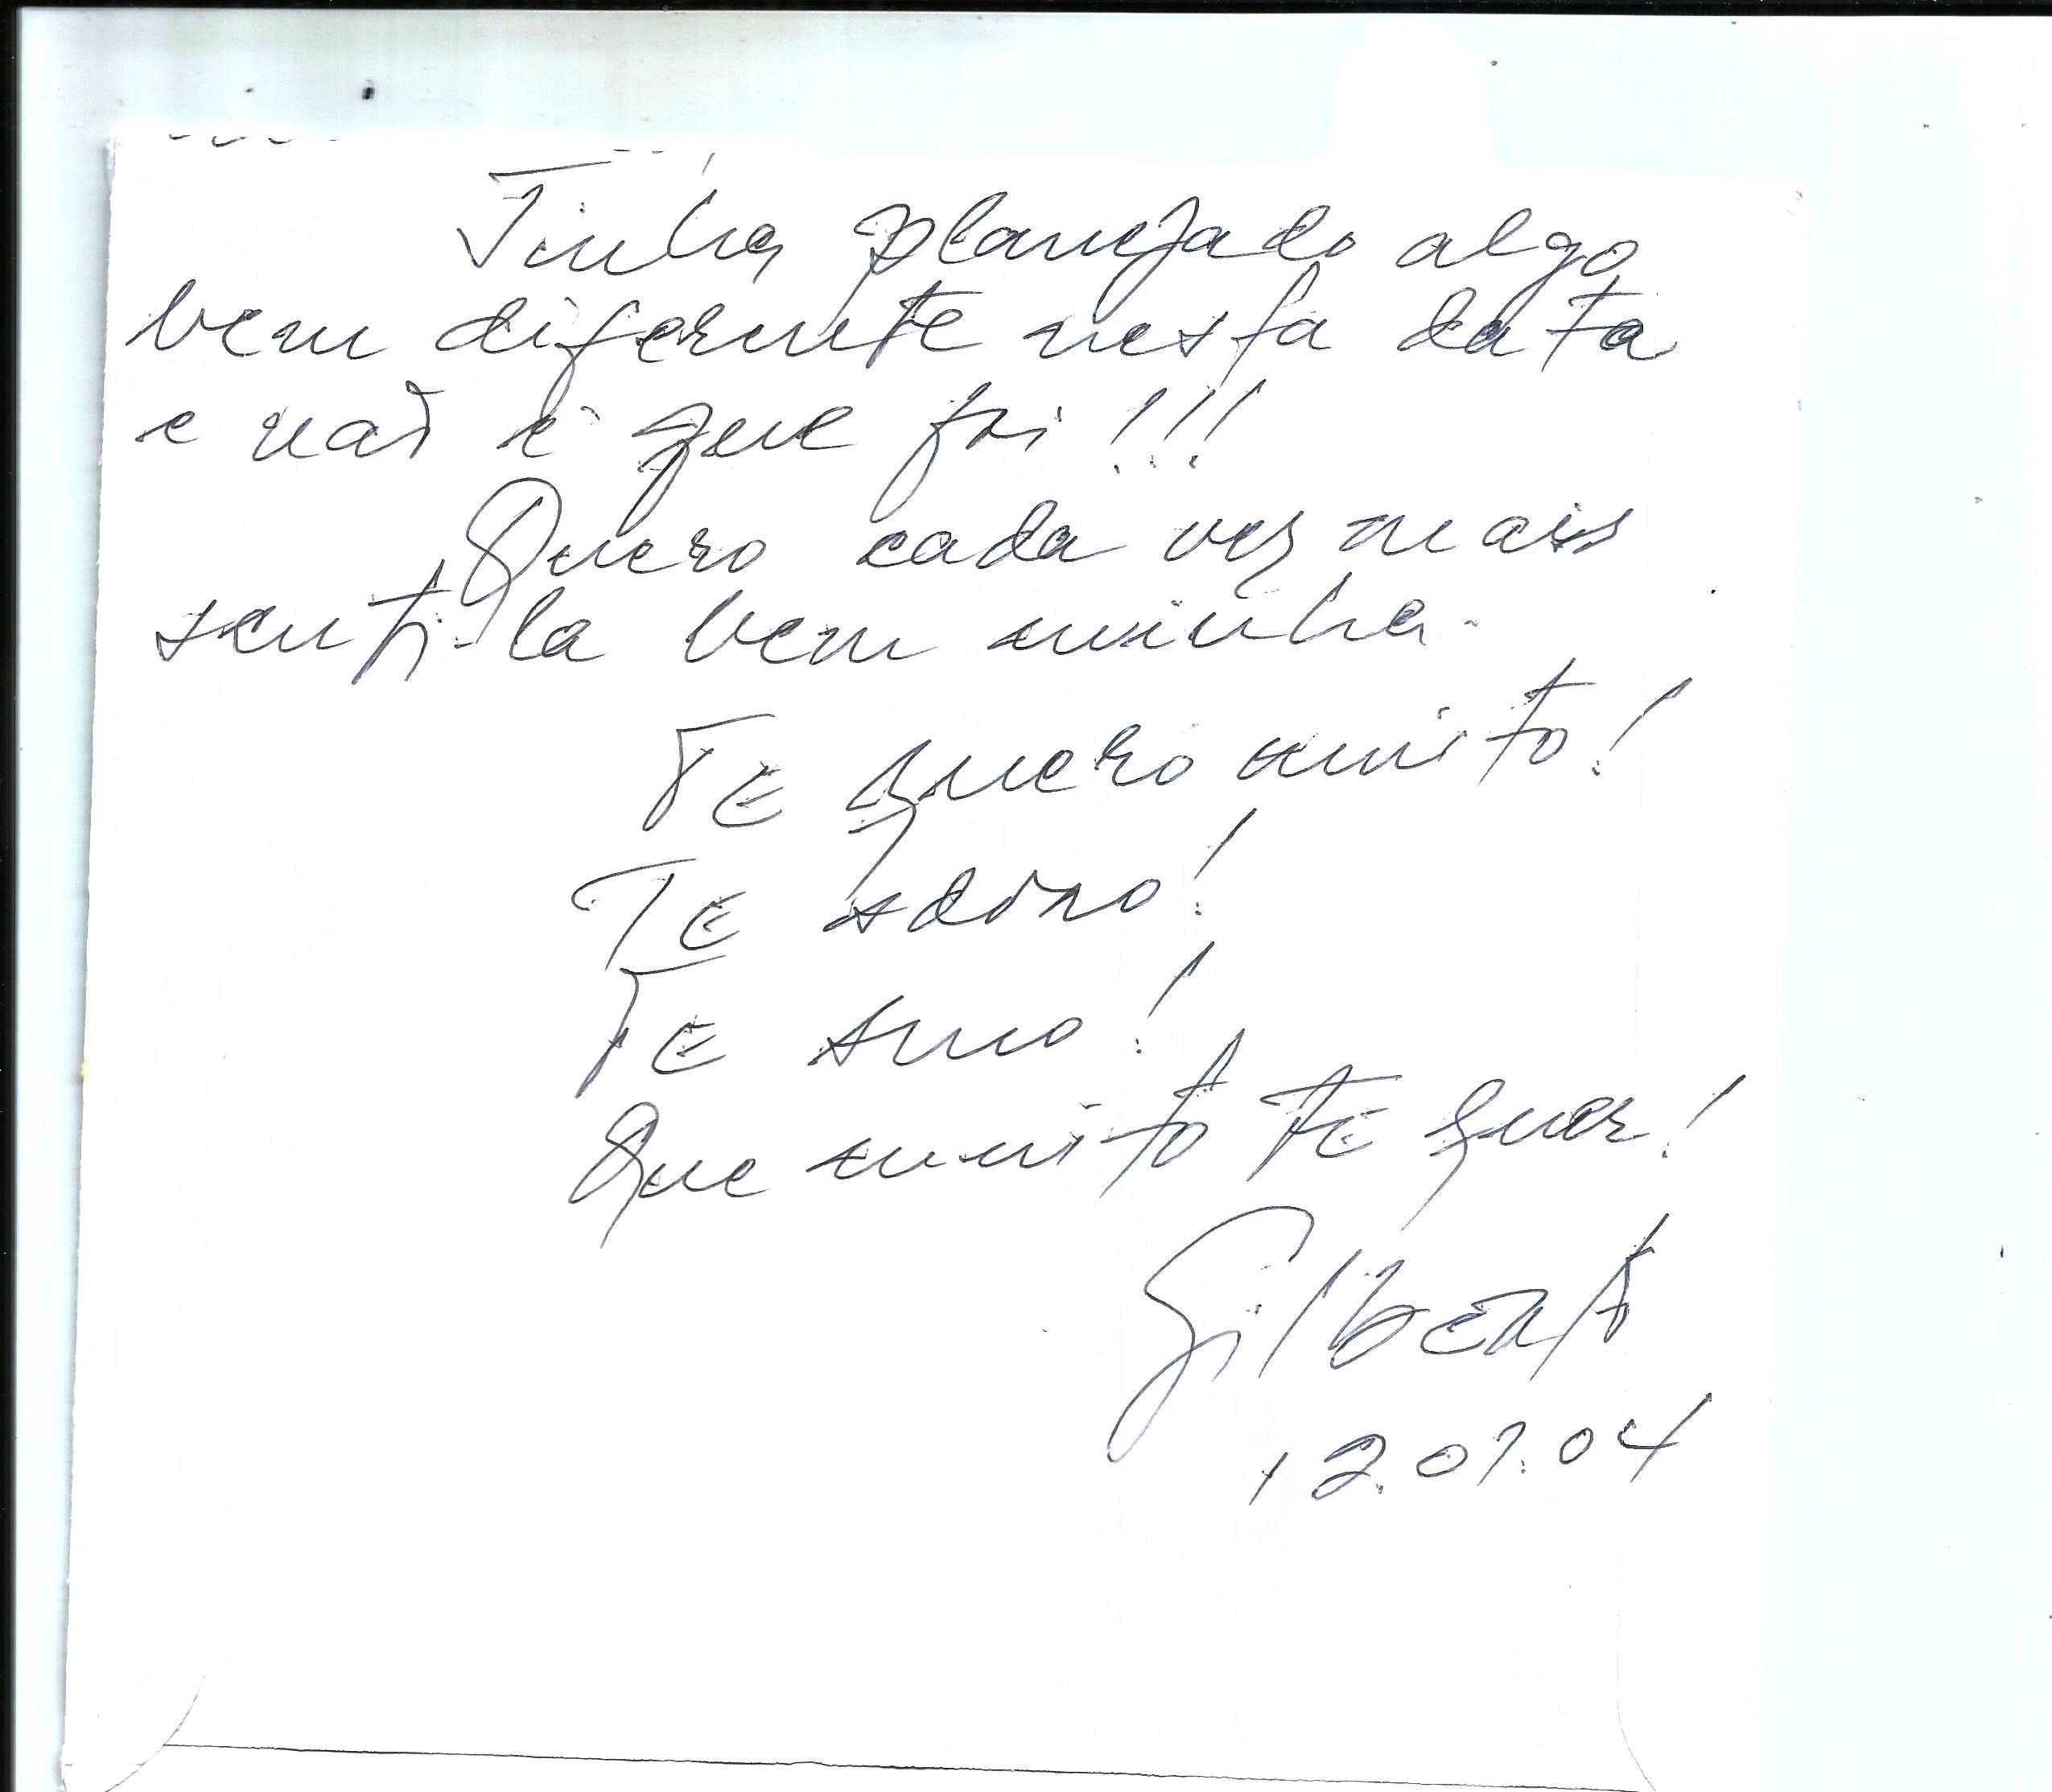 Tinha planejado algo
bem diferente nesta data
e não é que foi!!!
Quero cada vez mais
senti-la bem minha.
Te quero muito!
Te adoro!
Te amo!
Que muito te quer!
Gilberto
12.07.04